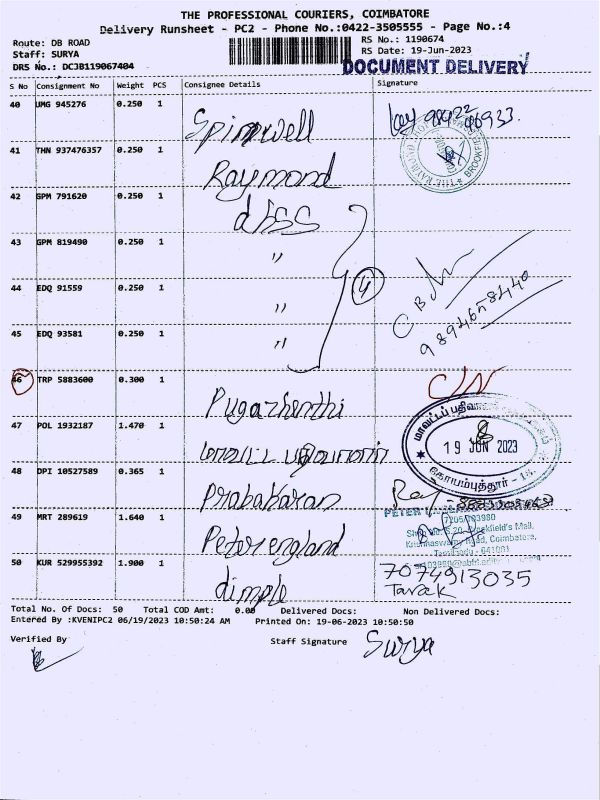 THE PROFESSIONAL COURIERS, COIMBATORE
Delivery Runsheet - PC2 - Phone No.:0422-3505555 - Page No.:4
Route: DB ROAD RS No.: 1190674
Staff: SURYA RS Date: 19-Jun-2023
DRS No.: DCJB119067404 DOCUMENT DELIVERY
S No Consignment No Weight PCS Consignee Details Signature
40 UMG 945276 0.250 1 Spinwell
41 THN 937476357 0.250 1 Raymond
42 GPM 791620 0.250 1 dhss
43 GPM 819490 0.250 1 "
44 EDQ 91559 0.250 1 " 4
45 EDQ 93581 0.250 1 " 9894658440
46 TRP 5883600 0.300 1 Pugazhenthi C/N
47 POL 1932187 1.470 1 மாவட்ட பதிவாளர் 19 JUN 2023
கோயம்புத்தூர்
48 DPI 10527589 0.365 1 Prabakaran
49 MRT 289619 1.640 1 Peter england
Krishnaswamy Road, Coimbatore,
Tamilnadu - 641001
50 KUR 529955392 1.900 1 dimple 7074913035
Tarak
Total No. Of Docs: 50 Total COD Amt: 0.00 Delivered Docs: Non Delivered Docs:
Entered By :KVENIPC2 06/19/2023 10:50:24 AM Printed On: 19-06-2023 10:50:50
Verified By Staff Signature Surya